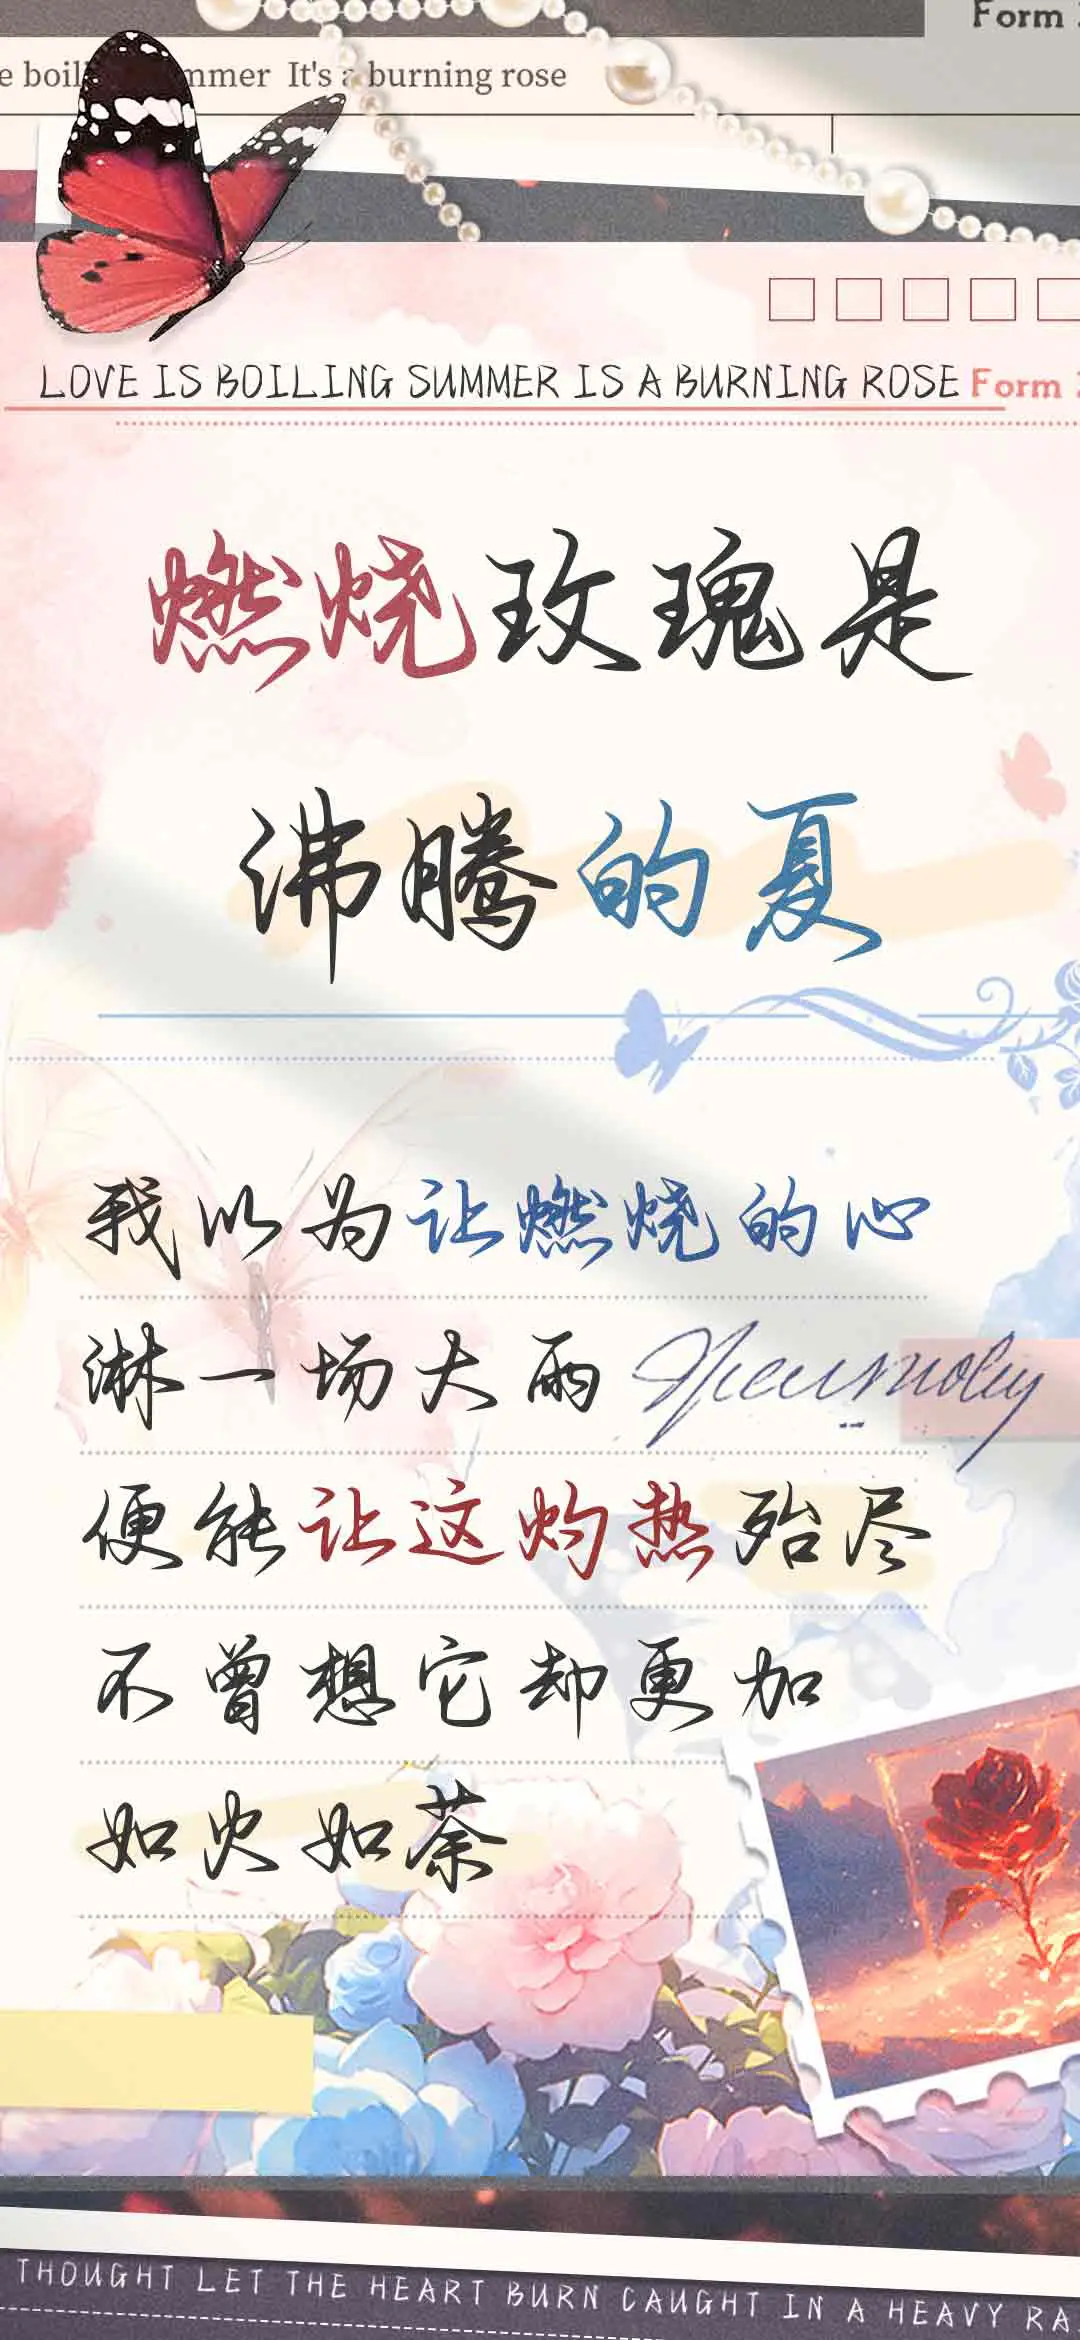 Form
e boil mmer It's a burning rose
LOVE IS BOILING SUMMER IS A BURNING ROSE Form
燃烧玫瑰是
沸腾的夏
我以为让燃烧的心
淋一场大雨
便能让这灼热殆尽
不曾想它却更加
如火如荼
THOUGHT LET THE HEART BURN CAUGHT IN A HEAVY RA